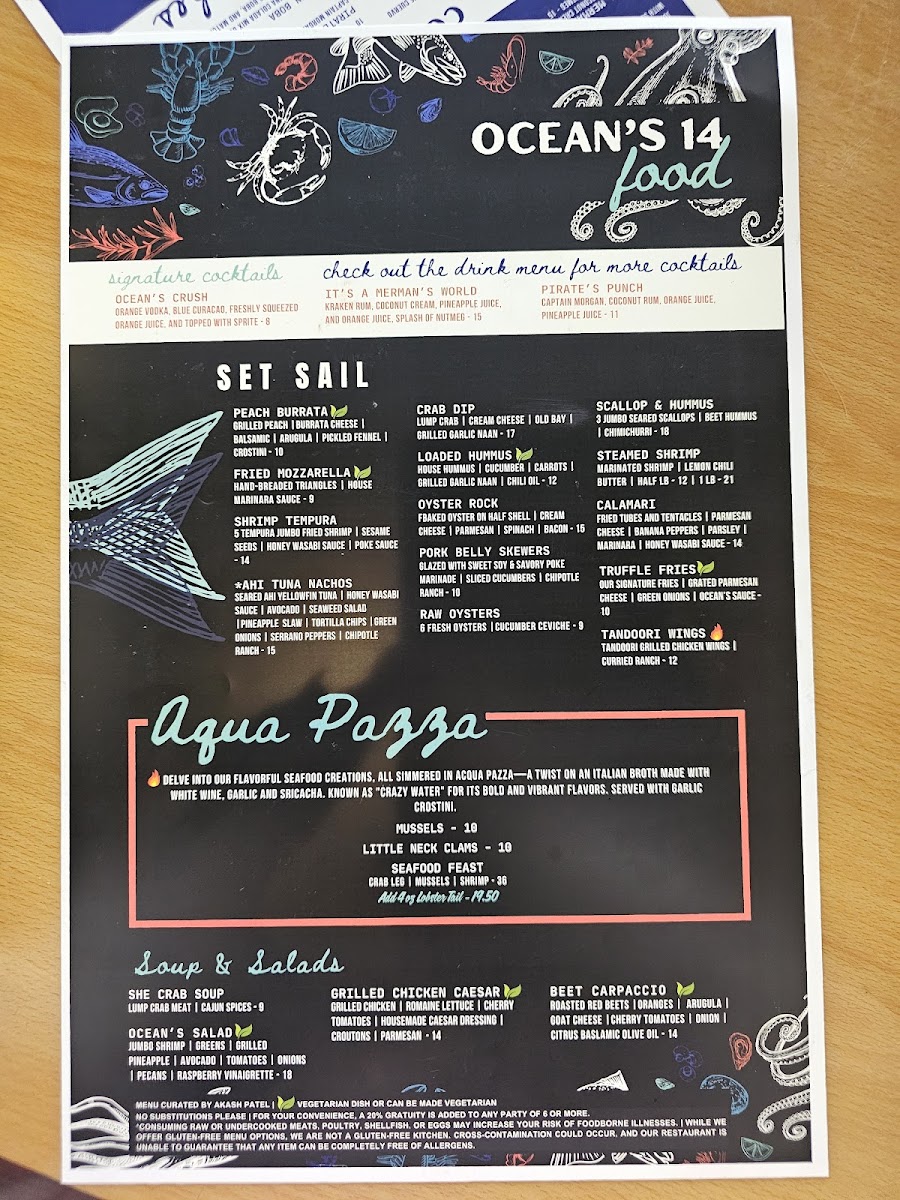 OCEAN'S 14
food
signature cocktails
check out the drink menu for more cocktails
OCEAN'S CRUSH
ORANGE VODKA, BLUE CURACAO, FRESHLY SQUEEZED
ORANGE JUICE, AND TOPPED WITH SPRITE - 8
IT'S A MERMAN'S WORLD
KRAKEN RUM, COCONUT CREAM, PINEAPPLE JUICE,
AND ORANGE JUICE, SPLASH OF NUTMEG - 15
PIRATE'S PUNCH
CAPTAIN MORGAN, COCONUT RUM, ORANGE JUICE,
PINEAPPLE JUICE - 11
SET SAIL
PEACH BURRATA
GRILLED PEACH | BURRATA CHEESE |
BALSAMIC | ARUGULA | PICKLED FENNEL |
CROSTINI - 10
FRIED MOZZARELLA
HAND-BREADED TRIANGLES | HOUSE
MARINARA SAUCE - 9
SHRIMP TEMPURA
5 TEMPURA JUMBO FRIED SHRIMP | SESAME
SEEDS | HONEY WASABI SAUCE | POKE SAUCE
- 14
*AHI TUNA NACHOS
SEARED AHI YELLOWFIN TUNA | HONEY WASABI
SAUCE | AVOCADO | SEAWEED SALAD
|PINEAPPLE SLAW | TORTILLA CHIPS |GREEN
ONIONS | SERRANO PEPPERS | CHIPOTLE
RANCH - 15
CRAB DIP
LUMP CRAB | CREAM CHEESE | OLD BAY |
GRILLED GARLIC NAAN - 17
LOADED HUMMUS
HOUSE HUMMUS | CUCUMBER | CARROTS |
GRILLED GARLIC NAAN | CHILI OIL - 12
OYSTER ROCK
FBAKED OYSTER ON HALF SHELL | CREAM
CHEESE | PARMESAN | SPINACH | BACON - 15
PORK BELLY SKEWERS
GLAZED WITH SWEET SOY & SAVORY POKE
MARINADE | SLICED CUCUMBERS | CHIPOTLE
RANCH - 10
RAW OYSTERS
6 FRESH OYSTERS |CUCUMBER CEVICHE - 9
SCALLOP & HUMMUS
3 JUMBO SEARED SCALLOPS | BEET HUMMUS
| CHIMICHURRI - 18
STEAMED SHRIMP
MARINATED SHRIMP | LEMON CHILI
BUTTER | HALF LB - 12 | 1 LB - 21
CALAMARI
FRIED TUBES AND TENTACLES | PARMESAN
CHEESE | BANANA PEPPERS | PARSLEY |
MARINARA | HONEY WASABI SAUCE - 14
TRUFFLE FRIES
OUR SIGNATURE FRIES | GRATED PARMESAN
CHEESE | GREEN ONIONS | OCEAN'S SAUCE -
10
TANDOORI WINGS
TANDOORI GRILLED CHICKEN WINGS |
CURRIED RANCH - 12
Aqua Pazza
DELVE INTO OUR FLAVORFUL SEAFOOD CREATIONS, ALL SIMMERED IN ACQUA PAZZA—A TWIST ON AN ITALIAN BROTH MADE WITH
WHITE WINE, GARLIC AND SRICACHA. KNOWN AS "CRAZY WATER" FOR ITS BOLD AND VIBRANT FLAVORS. SERVED WITH GARLIC
CROSTINI.
MUSSELS - 10
LITTLE NECK CLAMS - 10
SEAFOOD FEAST
CRAB LEG | MUSSELS | SHRIMP - 36
Add 4 oz Lobster Tail - 19.50
Soup & Salads
SHE CRAB SOUP
LUMP CRAB MEAT | CAJUN SPICES - 9
OCEAN'S SALAD
JUMBO SHRIMP | GREENS | GRILLED
PINEAPPLE | AVOCADO | TOMATOES | ONIONS
| PECANS | RASPBERRY VINAIGRETTE - 18
GRILLED CHICKEN CAESAR
GRILLED CHICKEN | ROMAINE LETTUCE | CHERRY
TOMATOES | HOUSEMADE CAESAR DRESSING |
CROUTONS | PARMESAN - 14
BEET CARPACCIO
ROASTED RED BEETS |ORANGES | ARUGULA |
GOAT CHEESE |CHERRY TOMATOES | ONION |
CITRUS BASLAMIC OLIVE OIL - 14
MENU CURATED BY AKASH PATEL | VEGETARIAN DISH OR CAN BE MADE VEGETARIAN
NO SUBSTITUTIONS PLEASE | FOR YOUR CONVENIENCE, A 20% GRATUITY IS ADDED TO ANY PARTY OF 6 OR MORE.
*CONSUMING RAW OR UNDERCOOKED MEATS, POULTRY, SHELLFISH, OR EGGS MAY INCREASE YOUR RISK OF FOODBORNE ILLNESSES. | WHILE WE
OFFER GLUTEN-FREE MENU OPTIONS, WE ARE NOT A GLUTEN-FREE KITCHEN. CROSS-CONTAMINATION COULD OCCUR, AND OUR RESTAURANT IS
UNABLE TO GUARANTEE THAT ANY ITEM CAN BE COMPLETELY FREE OF ALLERGENS.